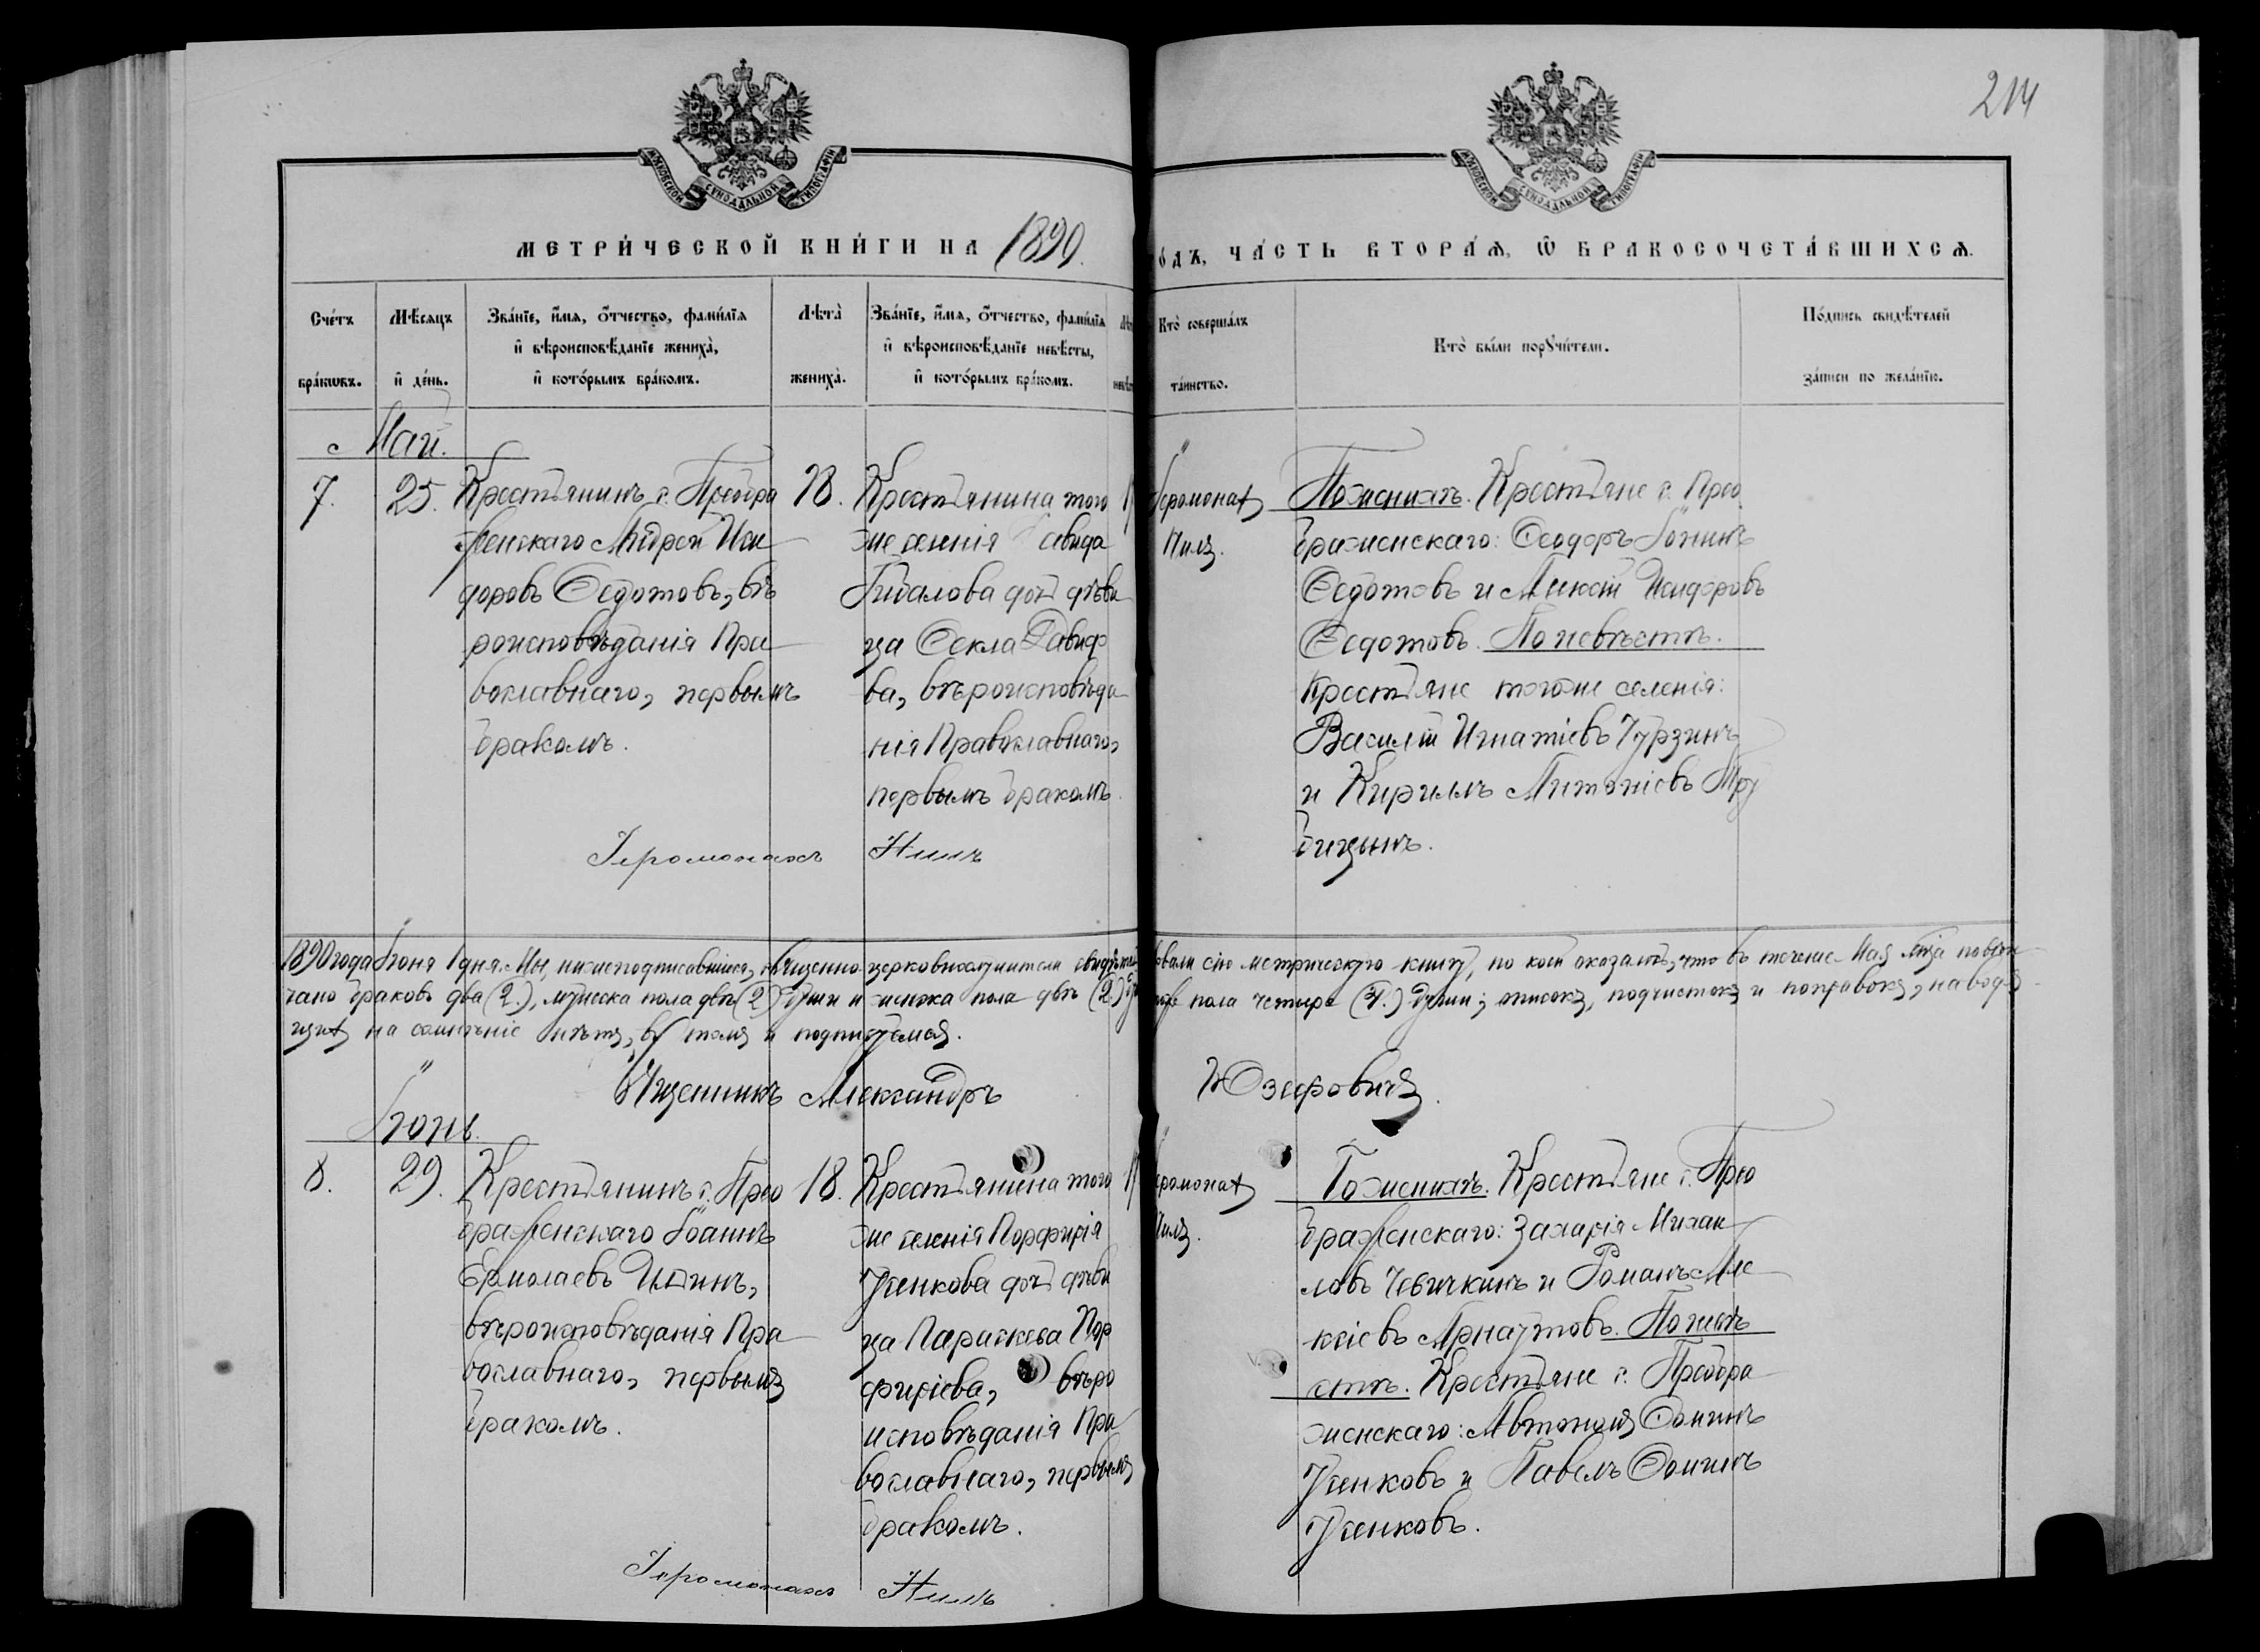 214
МОСКОВСКОЙ СѴНОДАЛЬНОЙ ТИПОГРАФІИ
МОСКОВСКОЙ СѴНОДАЛЬНОЙ ТИПОГРАФІИ
МЕТРИ́ЧЕСКОЙ КНИ́ГИ НА 1890. о́дъ, ЧА́СТЬ ВТОРА́Ѧ, Ѿ БРАКОСОЧЕТА́ВШИХСѦ.
Сче́тъ бра́кѡвъ.
Мѣ́сяцъ и҆ де́нь.
Зва́нїе, и҆́мѧ, о҆́тчество, фами́лїѧ
и҆ вѣроисповѣ́данїе жениха̀,
и҆ кото́рымъ бра́комъ.
Лѣта̀ жениха̀.
Зва́нїе, и҆́мѧ, о҆́тчество, фами́лїѧ
и҆ вѣроисповѣ́данїе невѣ́сты,
и҆ кото́рымъ бра́комъ.
Кто̀ соверша́лъ
та́инство.
Кто̀ бы́ли порꙋчи́тели.
По́дпись свидѣ́телей
за́писи по жела́нїю.
Май.
7.
25.
Крестьянинъ с. Преобра
женскаго Андрей Иси
доровъ Ѳедотовъ, вѣ
роисповѣданія Пра
вославнаго, первымъ
бракомъ.
18.
Крестьянина того
же селенія Давида
дочь дѣви
ца Ѳекла Давидо
ва, вѣроисповѣда
нія Православнаго,
первымъ бракомъ.
Іеромонах
Нилъ.
По женихѣ. Крестьяне с. Прео
браженскаго: Ѳеодоръ
Ѳедотовъ и Алексѣй Исидоровъ
Ѳедотовъ. По невѣстѣ.
Крестьяне того же селенія:
Василій Игнатіевъ Турзинъ
и Кириллъ Антоніевъ Тру
бицынъ.
Іеромонахъ Нилъ
1890 года Іюня 1 дня. Мы, нижеподписавшіеся, священно-церковнослужители свидѣтельствовали сію метрическую книгу, по коей оказалось, что въ теченіе Мая мѣсяца повѣн
чано браковъ два (2), мужеска пола двѣ (2) души и женска пола двѣ (2) пола четыре (4.) души; описокъ, подчистокъ и поправокъ, навод
ящихъ на сомнѣніе нѣтъ, въ томъ и подписуемся.
Священникъ Александръ Юзефовичъ.
Іюнь.
8.
29.
Крестьянинъ с. Прео
браженскаго Іоаннъ
Ермолаевъ
вѣроисповѣданія Пра
вославнаго, первымъ
бракомъ.
18.
Крестьянина того
же селенія Порфирія
Усенкова дочь дѣви
ца Параскева Пор
фиріева, вѣро
исповѣданія Пра
вославнаго, первымъ
бракомъ.
Іеромонах
Нилъ.
По женихѣ. Крестьяне с. Прео
браженскаго: Захарія Михаи
ловъ Чевычкинъ и Романъ Але
ксіевъ Арнаутовъ. По невѣ
стѣ. Крестьяне с. Преобра
женскаго: Автономъ Ѳоминъ
Усенковъ и Павелъ Ѳоминъ
Усенковъ.
Іеромонахъ Нилъ